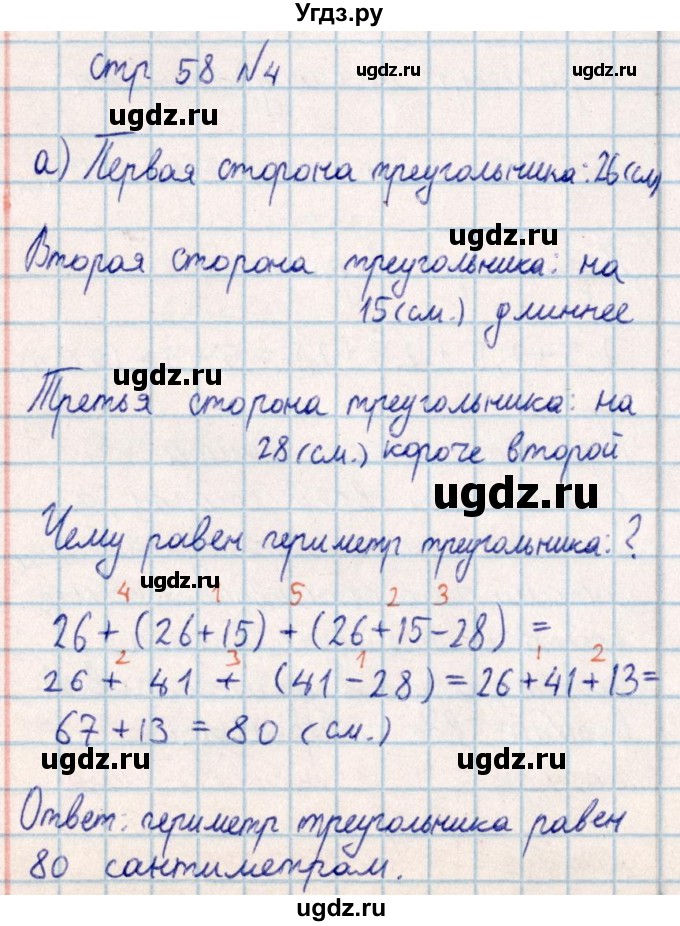 Угдз.ру
стр 58 №4
ugdz.ru
ugdz.ru
ugdz.ru
а) Первая сторона треугольника: 26(см)
ugdz.ru
Вторая сторона треугольника: на
15(см.) длиннее
ugdz.ru
Третья сторона треугольника: на
28(см.) короче второй
ugdz.ru
Чему равен периметр треугольника: ?
ugdz.ru
4 1 5 2 3
26+(26+15)+(26+15-28)=
2 3 1 1 2
26+ 41 + (41-28)=26+41+13=
67+13=80(см.)
ugdz.ru
ugdz.ru
Ответ: периметр треугольника равен
80 сантиметрам.
ugdz.ru
ugdz.ru